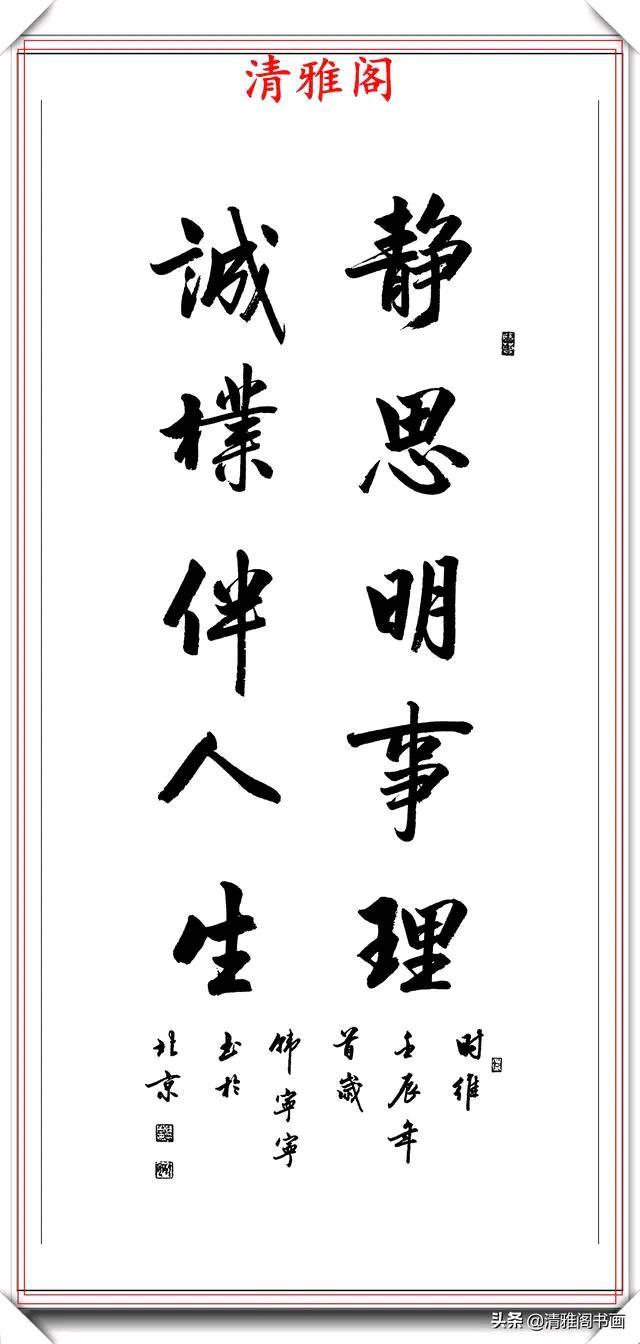 清雅阁
静思明事理
誠樸伴人生
时维
壬辰年
首歲
韩寧寧
书於
北京
头条@清雅阁书画